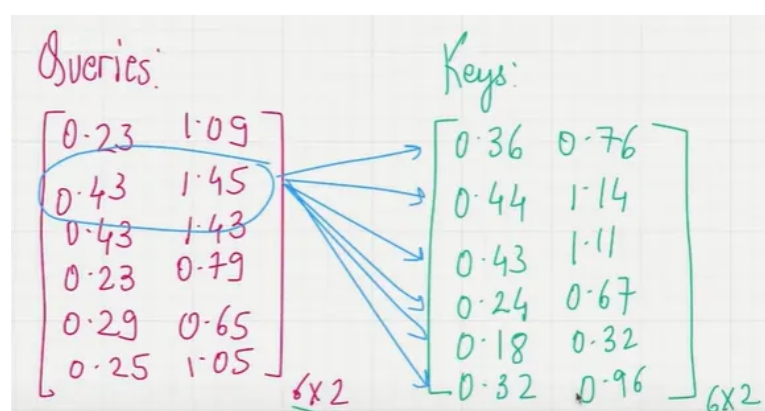 Queries:
0.23 1.09
0.43 1.45
0.43 1.43
0.23 0.79
0.29 0.65
0.25 1.05
6X2
Keys:
0.36 0.76
0.44 1.14
0.43 1.11
0.24 0.67
0.18 0.32
0.32 0.96
6X2